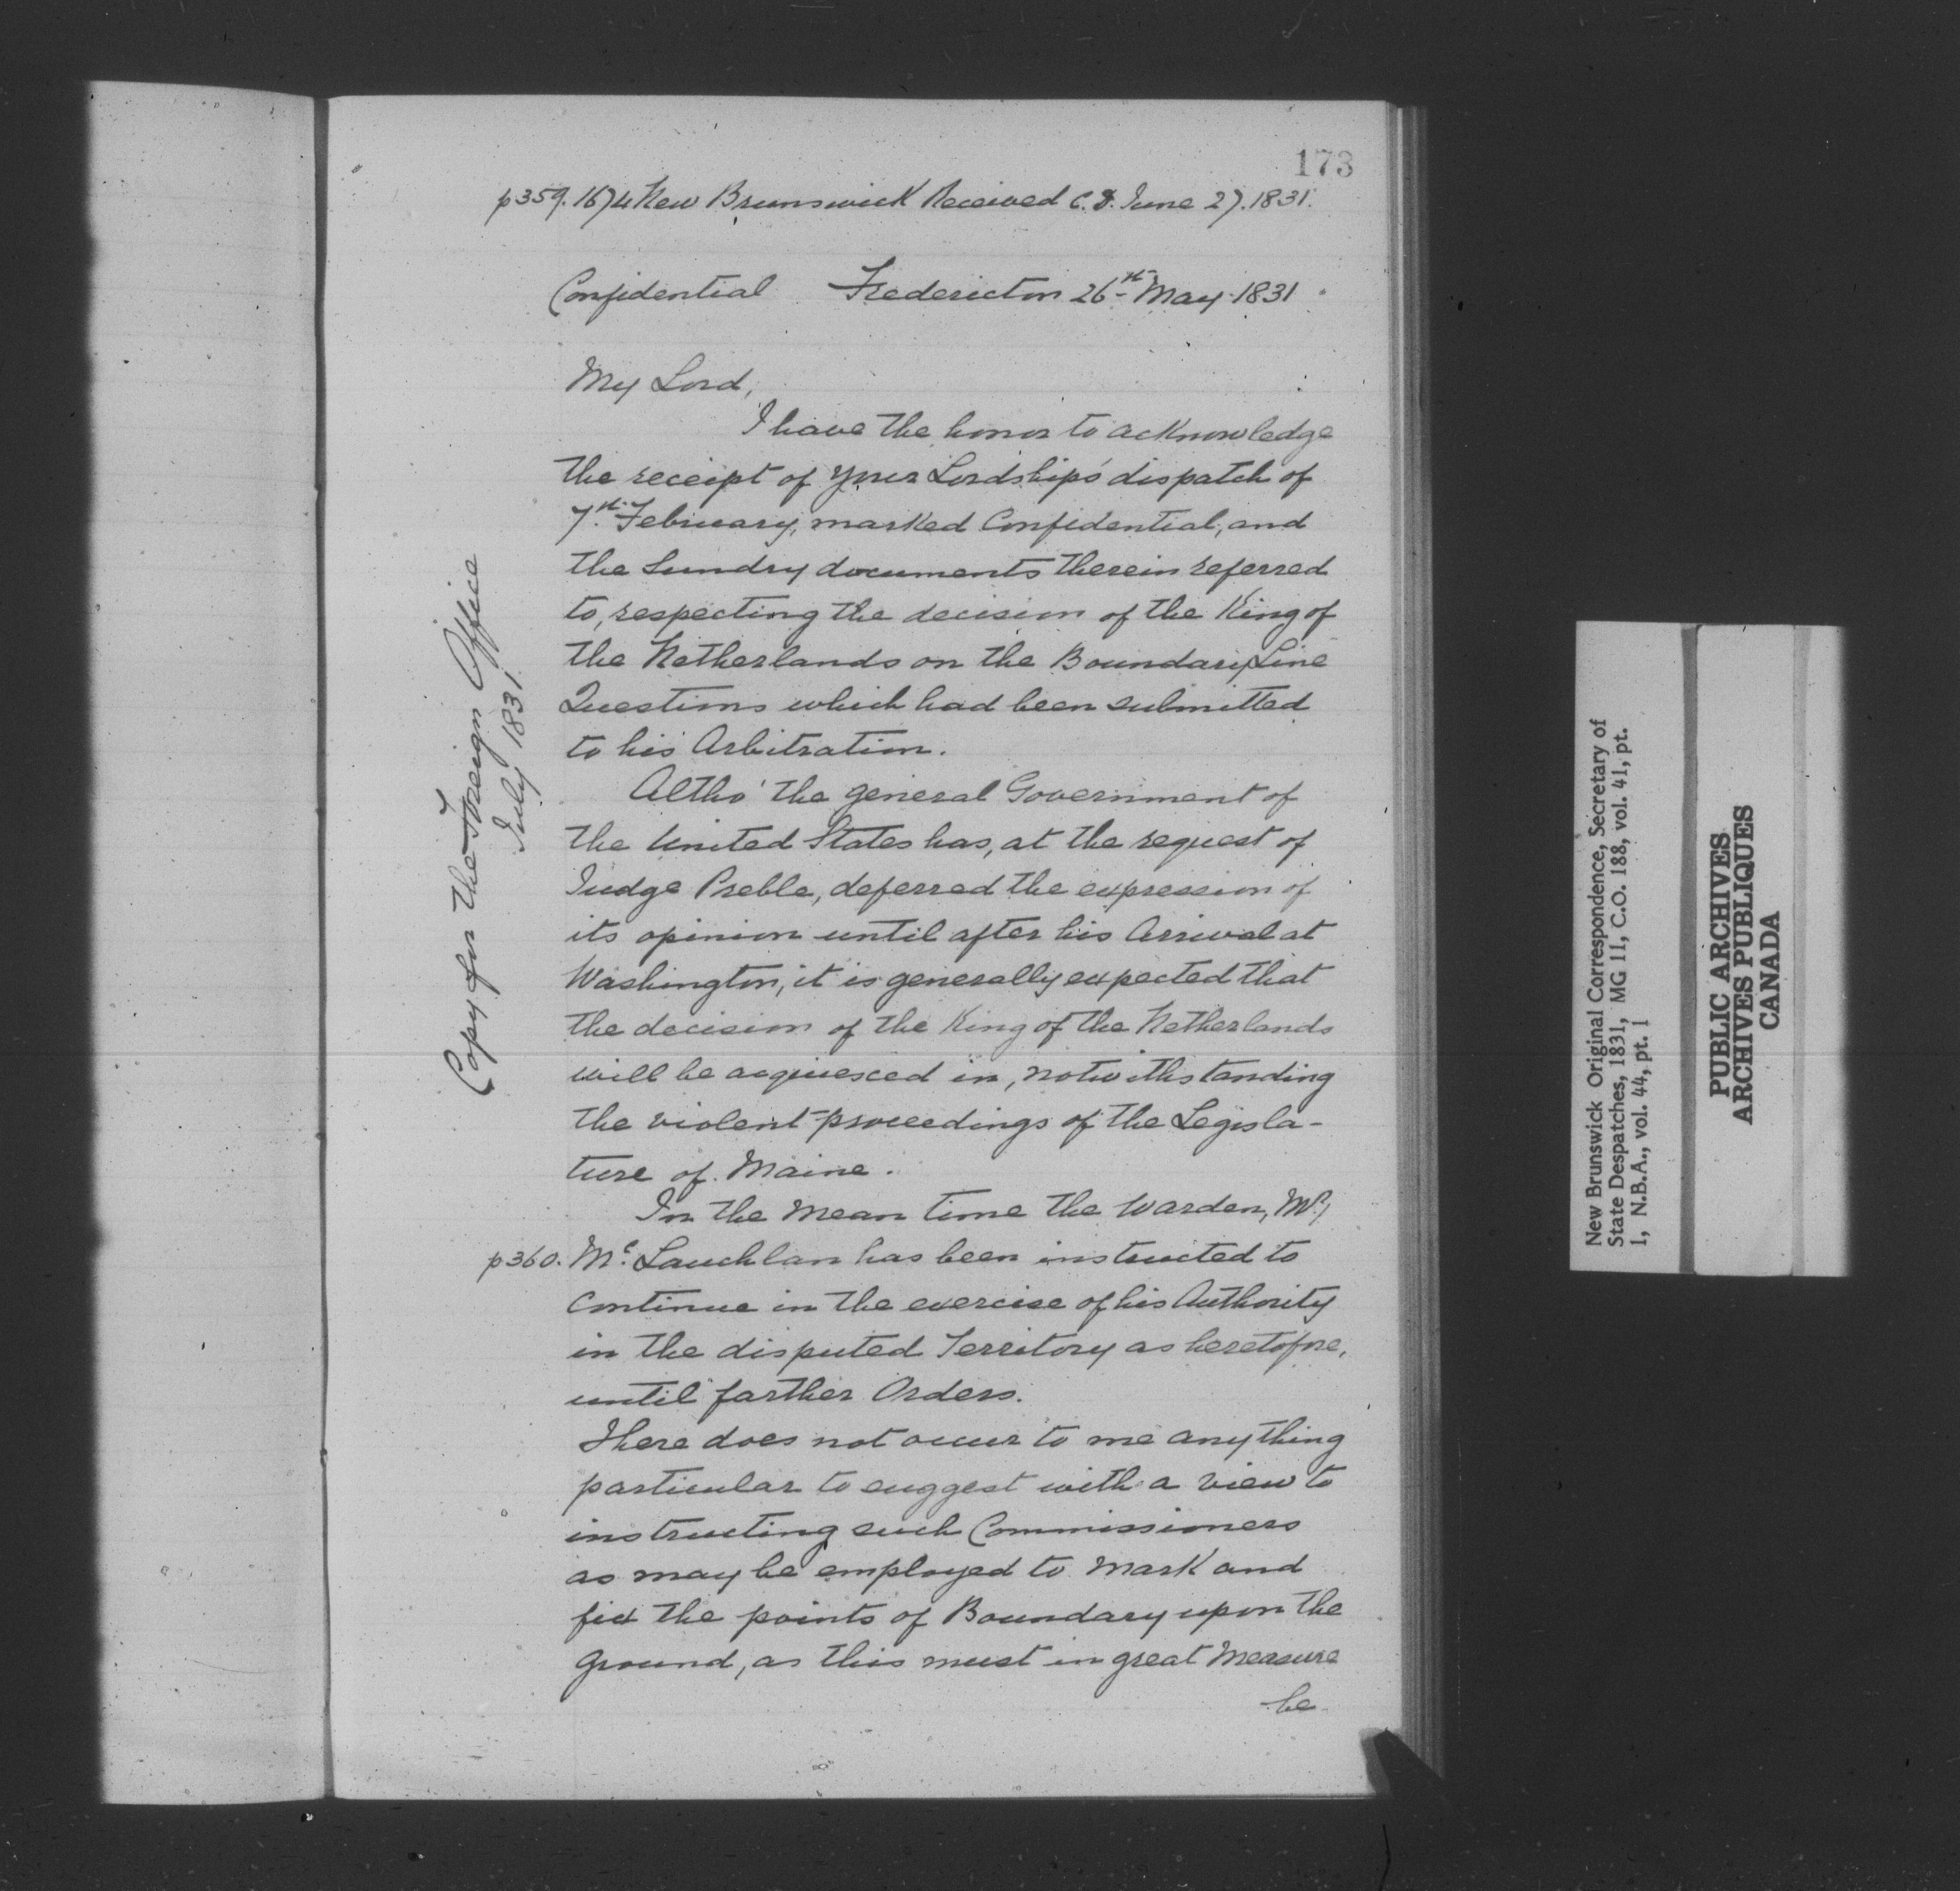 173
p359. 1674 New Brunswick Received C.D. June 27. 1831.
Confidential Fredericton 26th May 1831.
My Lord,
I have the honor to acknowledge
the receipt of your Lordship's dispatch of
7th February, marked Confidential, and
the Sundry documents therein referred
to, respecting the decision of the King of
the Netherlands on the Boundary Line
Questions which had been submitted
to his Arbitration.
Altho' the general Government of
the United States has, at the request of
Judge Preble, deferred the expression of
its opinion until after his Arrival at
Washington, it is generally expected that
the decision of the King of the Netherlands
will be acquiesced in, notwithstanding
the violent proceedings of the Legisla-
ture of Maine.
In the Mean time the Warden, Mr
p360. Mc Lauchlan has been instructed to
Continue in the exercise of his Authority
in the disputed Territory as heretofore,
until farther Orders.
There does not occur to me anything
particular to suggest with a view to
instructing such Commissioners
as may be employed to Mark and
fix the points of Boundary upon the
Ground, as this must in great Measure
be
Copy for the Foreign Office
July 1831.
New Brunswick Original Correspondence, Secretary of
State Despatches, 1831, MG 11, C.O. 188, vol. 41, pt.
1, N.B.A., vol. 44, pt. 1
PUBLIC ARCHIVES
ARCHIVES PUBLIQUES
CANADA